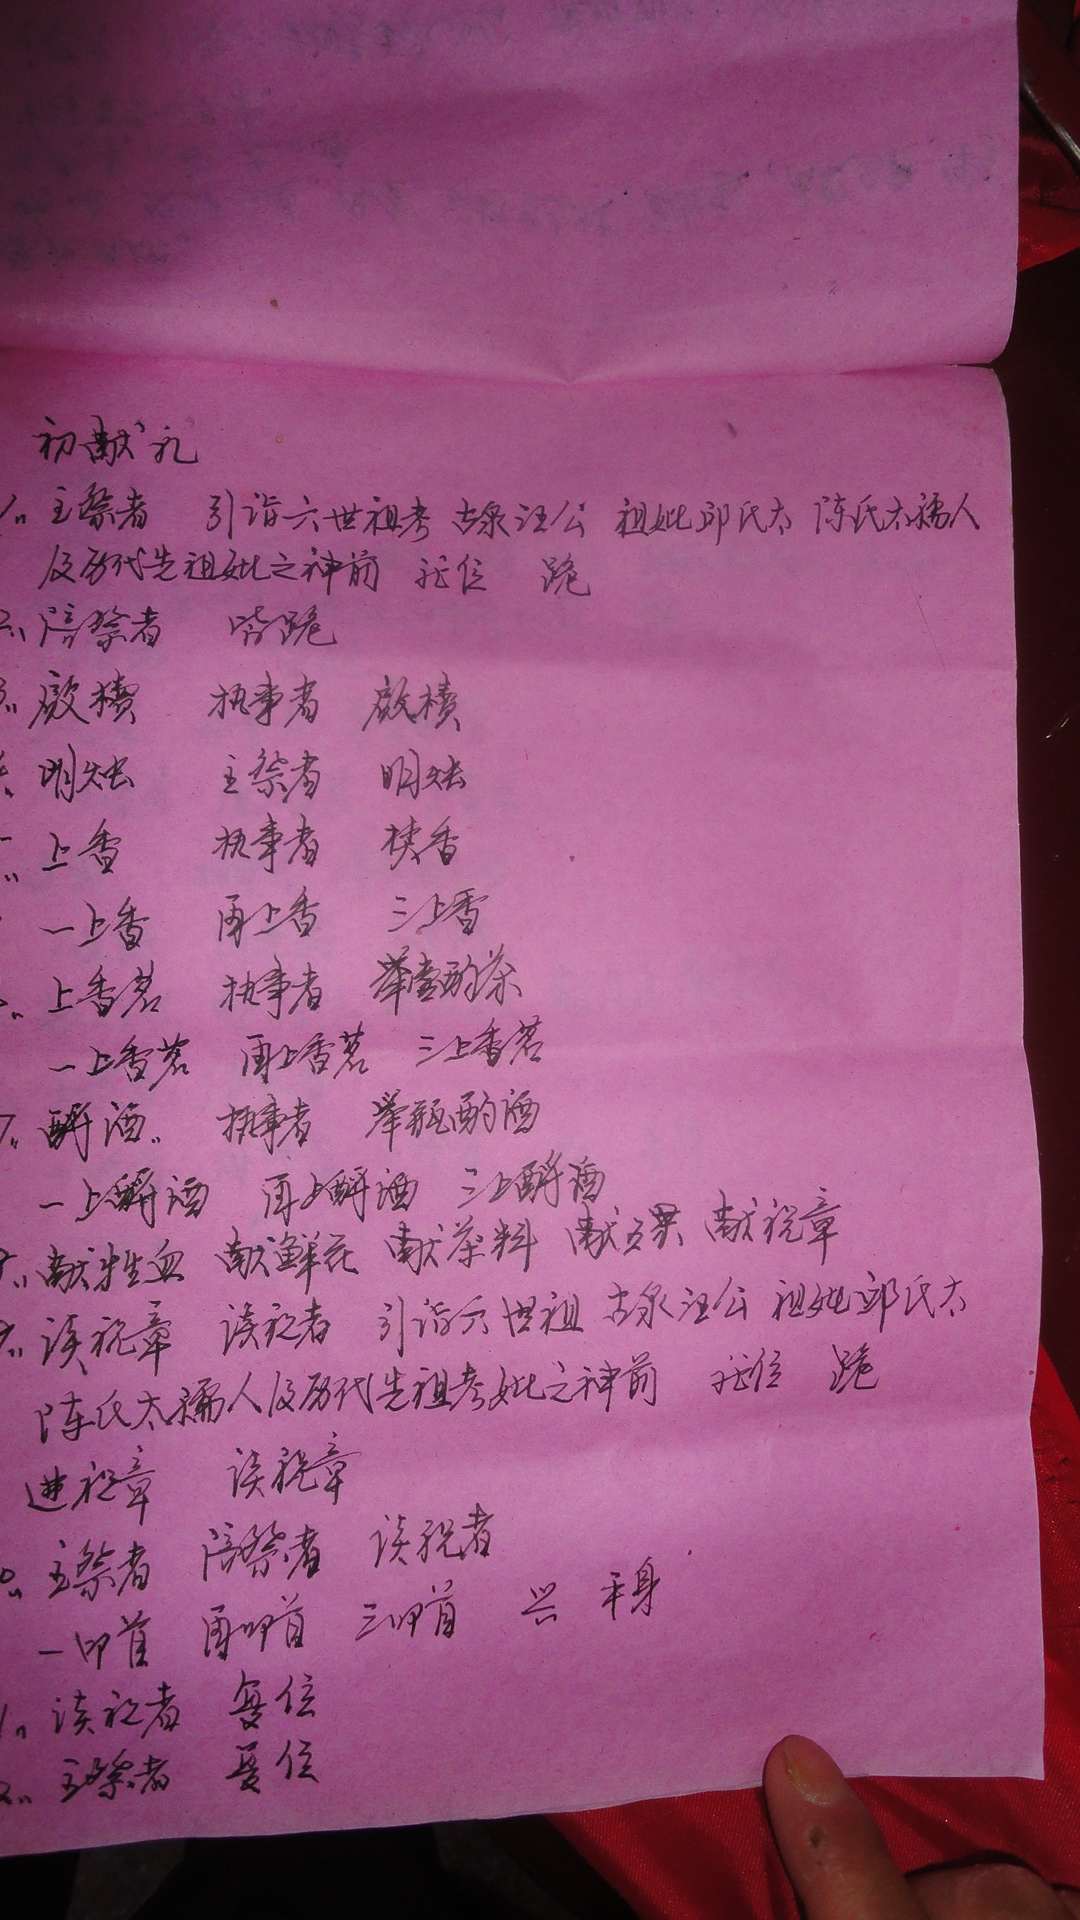 初献礼
1、主祭者 引诣六世祖考 古泉汪公 祖妣邱氏太 陈氏太孺人
及历代先祖妣之神前 就位 跪
2、陪祭者 皆跪
3、启椟 执事者 启椟
明烛 主祭者 明烛
上香 执事者 捧香
一上香 再上香 三上香
上香茗 执事者 举壶酌茶
一上香茗 再上香茗 三上香茗
7、酹酒 执事者 举瓶酌酒
一上酹酒 再上酹酒 三上酹酒
献牲血 献鲜花 献茶料 献 献祝章
读祝章 读祝者 引诣六世祖 古泉汪公 祖妣邱氏太
陈氏太孺人及历代先祖考妣之神前 就位 跪
进祝章 读祝章
主祭者 陪祭者 读祝者
一叩首 再叩首 三叩首 兴 平身
读祝者 复位
主祭者 复位